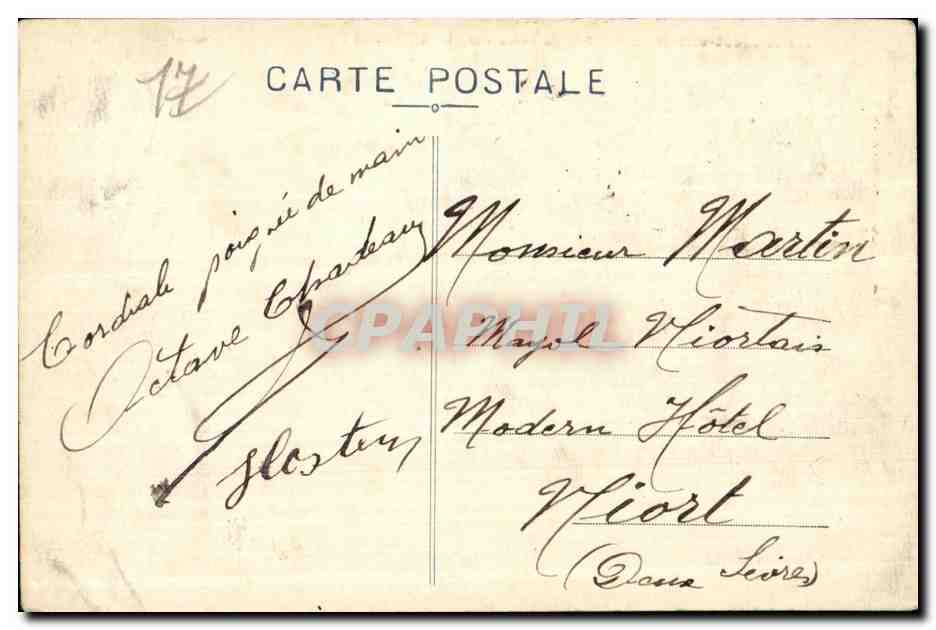 17
CARTE POSTALE
Cordiale poignée de main
Octave
Monsieur Martin
Mayol Niortais
Modern Hôtel
Niort
(Deux Sèvres)
CPAPHIL